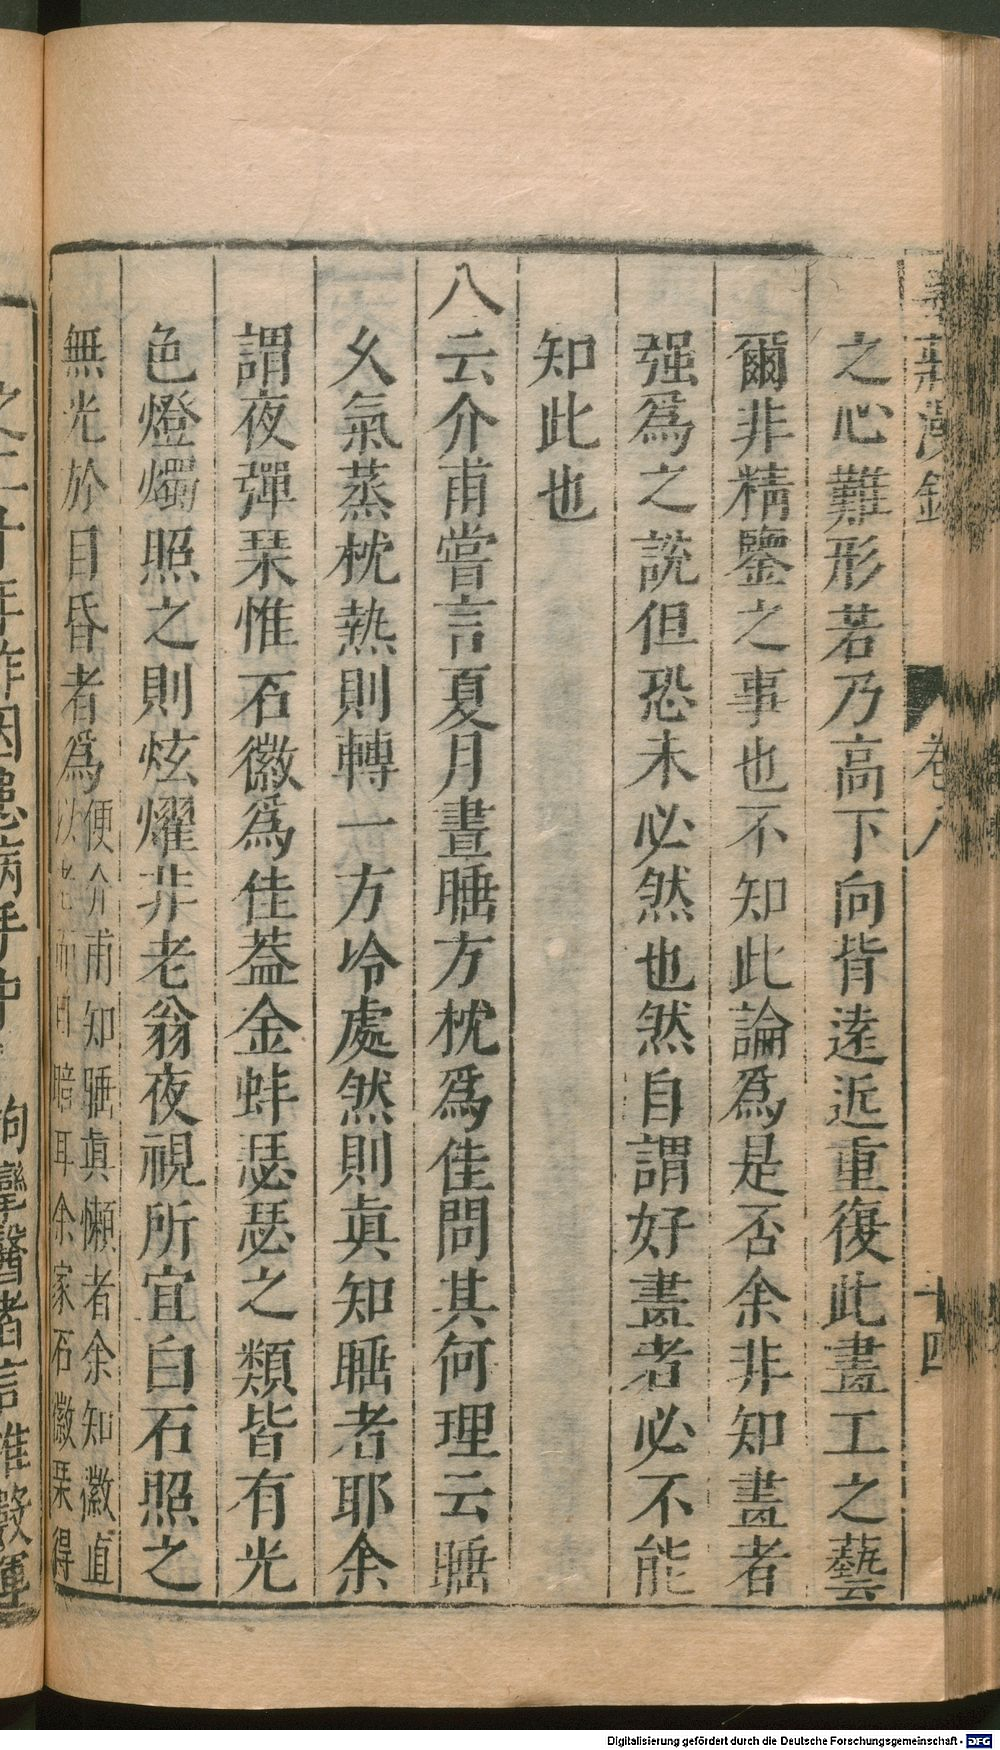 之心難形若乃高下向背遠近重復此畫工之藝
爾非精鑒之事也不知此論爲是否余非知畫者
强爲之說但恐未必然也然自謂好畫者必不能
知此也
八云介甫嘗言夏月晝睡方枕爲佳問其何理云睡
久氣蒸枕熱則轉一方冷處然則眞知睡者耶余
謂夜彈琹惟石徽爲佳葢金蚌瑟瑟之類皆有光
色燈燭照之則炫燿非老翁夜視所宜白石照之
無光於目昏者爲
便介甫知睡眞懶者余知徽直
以老而目暗耳余家石徽琹得
卷八
十四
Digitalisierung gefördert durch die Deutsche Forschungsgemeinschaft - DFG